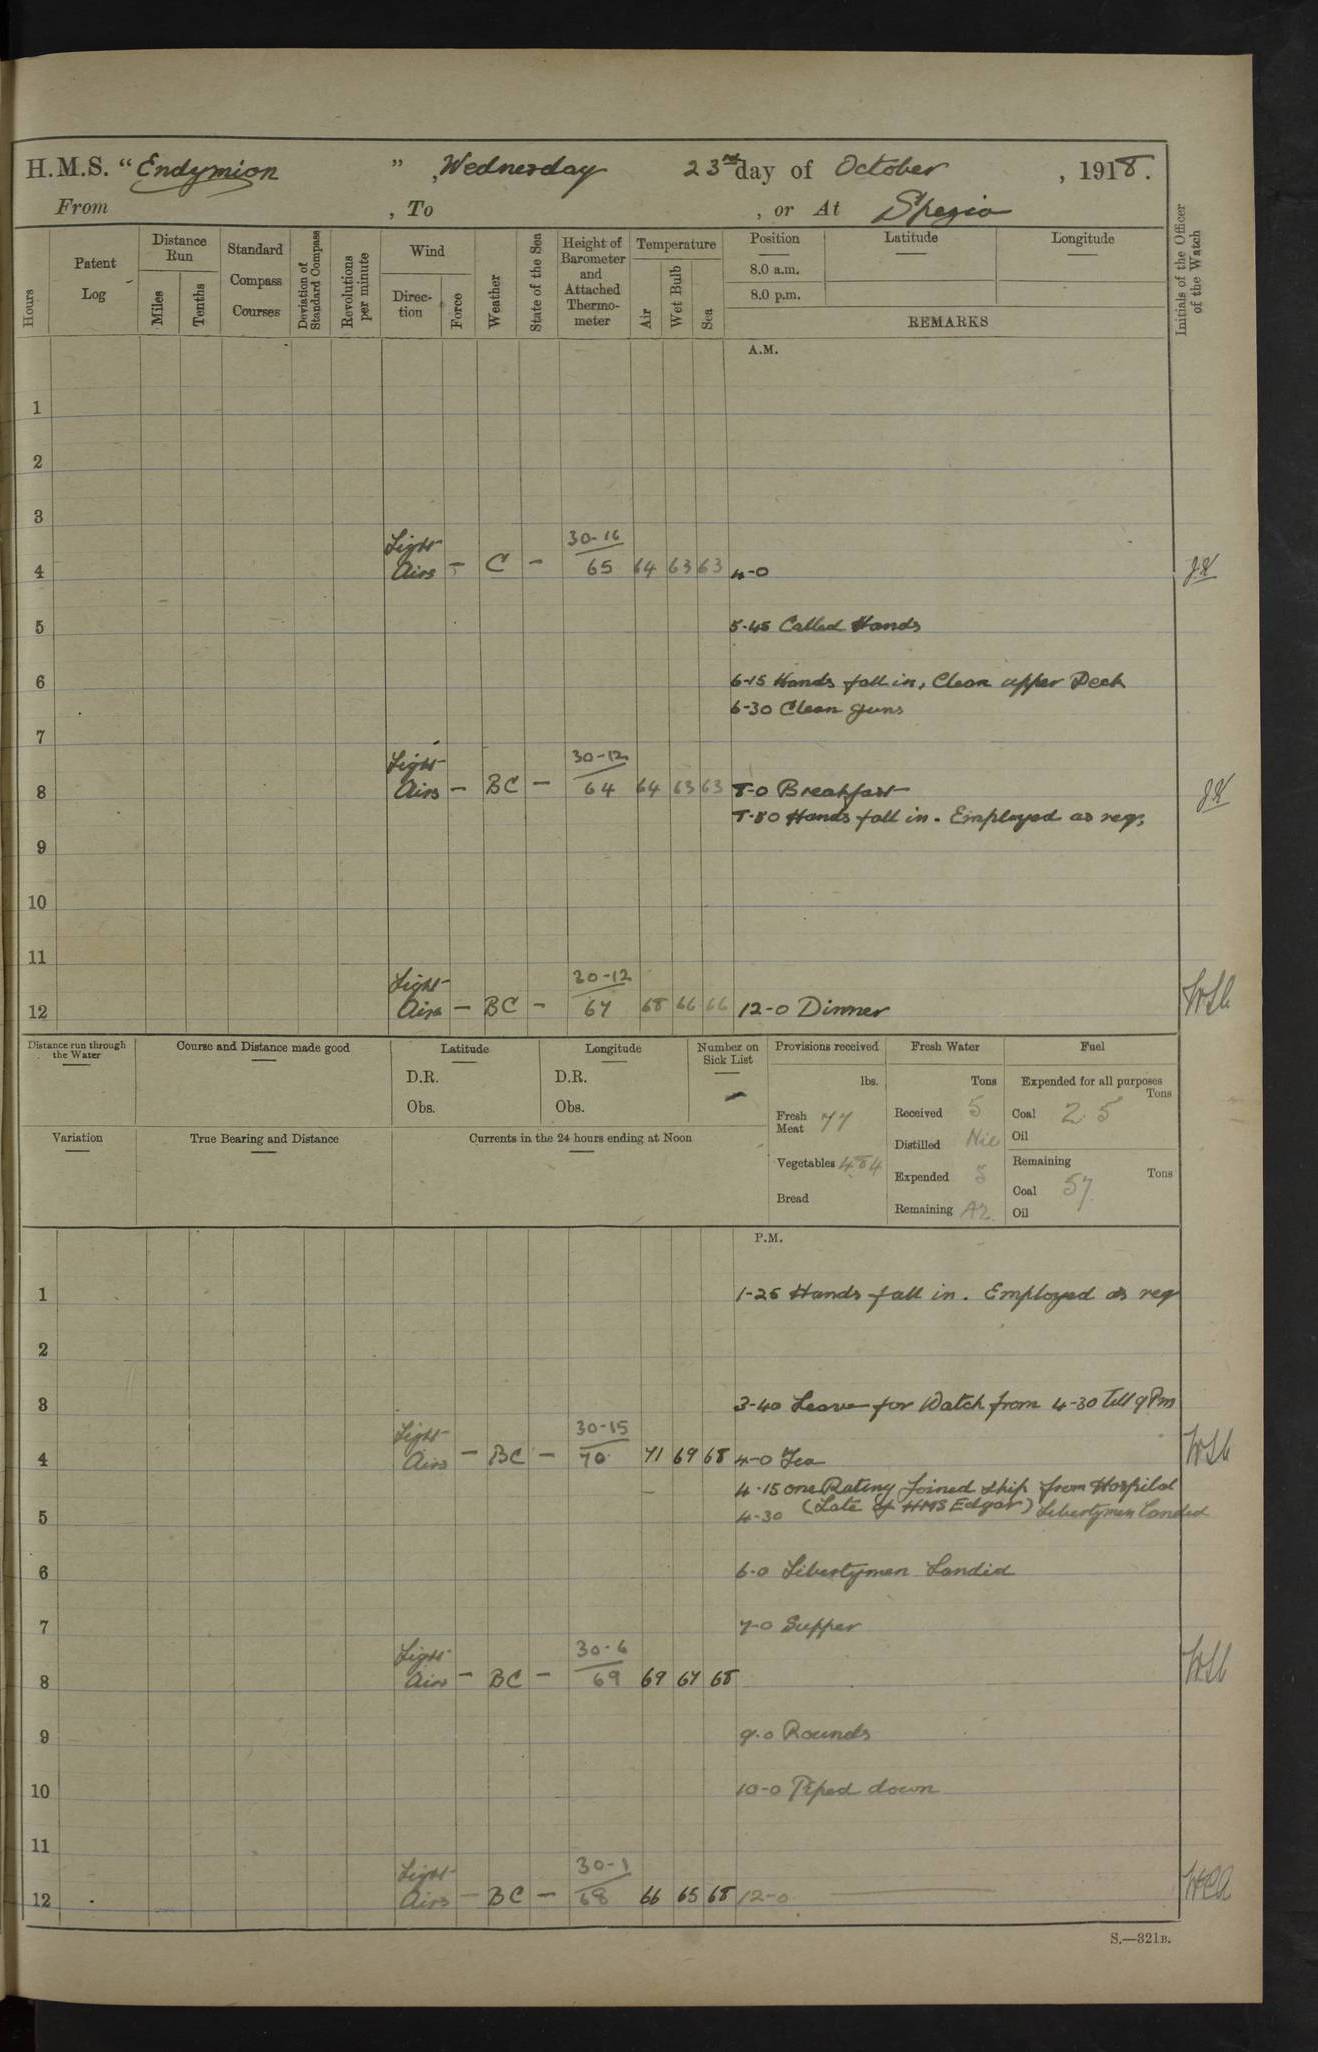 H.M.S. "Endymion", Wednesday 23rd day of October, 1918.
From , To , or At Spezia
Hours
Patent Log
Distance Run
Miles
Tenths
Standard Compass Courses
Deviation of Standard Compass
Revolutions per minute
Wind
Direc-tion
Force
Weather
State of the Sea
Height of Barometer and Attached Thermo-meter
Temperature
Air
Wet Bulb
Sea
Position
8.0 a.m.
8.0 p.m.
Latitude
Longitude
REMARKS
Initials of the Officer of the Watch
A.M.
1
2
3
Light 30-16
4 Airs - C - 65 64 63 63 4-0
5 5-45 Called Hands
6 6-15 Hands fall in, Clean upper Deck
6-30 Clean guns
7
Light 30-12
8 Airs - BC - 64 64 63 63 8-0 Breakfast
Hands fall in. Employed as req.
9
10
11
Light 30-12
12 Airs - BC - 67 68 66 66 12-0 Dinner
Distance run through the Water
Course and Distance made good
Latitude
D.R.
Obs.
Longitude
D.R.
Obs.
Number on Sick List
-
Provisions received
lbs.
Fresh Meat 77
Vegetables 484
Bread
Fresh Water
Tons
Received 5
Distilled Nil
Expended 5
Remaining 42
Fuel
Expended for all purposes
Tons
Coal 2.5
Oil
Remaining
Tons
Coal 57
Oil
Variation
True Bearing and Distance
Currents in the 24 hours ending at Noon
P.M.
1 1-25 Hands fall in. Employed as req
2
3 3-40 Leave for Watch from 4-30 till 9 Pm
Light 30-15
4 Airs - BC - 70 71 69 68 4-0 Tea
4-15 one Rating Joined ship from Hospital
(Late of HMS Edgar)
5 4-30 Libertymen landed
6 6-0 Libertymen Landed
7 7-0 Supper
Light 30-6
8 Airs - BC - 69 69 67 68
9 9-0 Rounds
10 10-0 Piped down
11
Light 30-1
12 Airs - BC - 68 66 65 68 12-0
S.—321B.